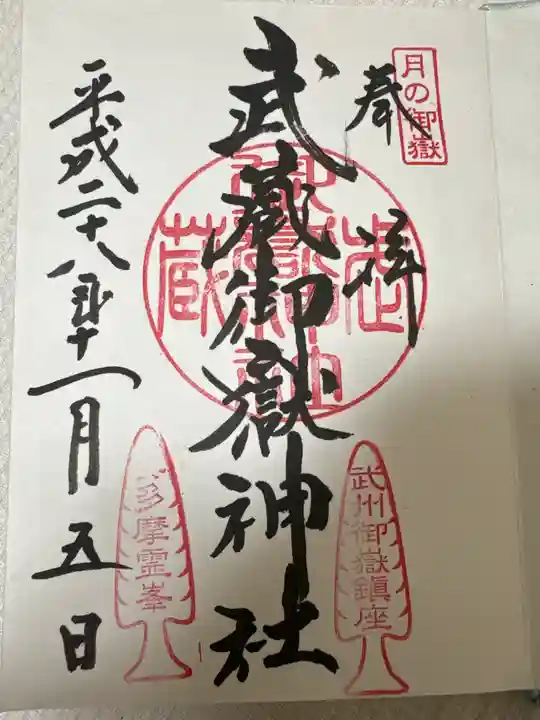 月の御嶽
奉拝
武蔵御嶽神社
武州御嶽鎮座
多摩霊峯
平成二十八年十一月五日